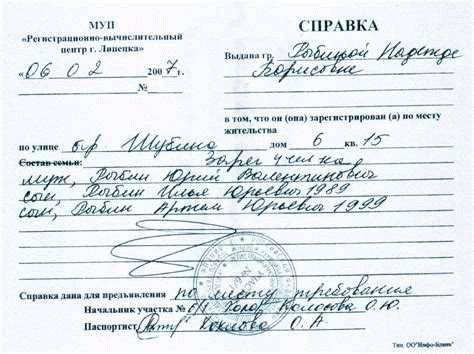 МУП
«Регистрационно-вычислительный
центр г. Липецка»
«06 02 2007 г.
№
СПРАВКА
Выдана гр. Надежде
Борисовне
в том, что он (она) зарегистрирован (а) по месту
жительства
по улице б-р Шубина дом 6 кв. 15
Состав семьи: Зарег 4
муж, Юрий Валентинович
сын, Илья Юрьевич 1989
сын, Артем Юрьевич 1999
Справка дана для предъявления по месту требования
Начальник участка Колосова О.Ю.
Паспортист О.А.